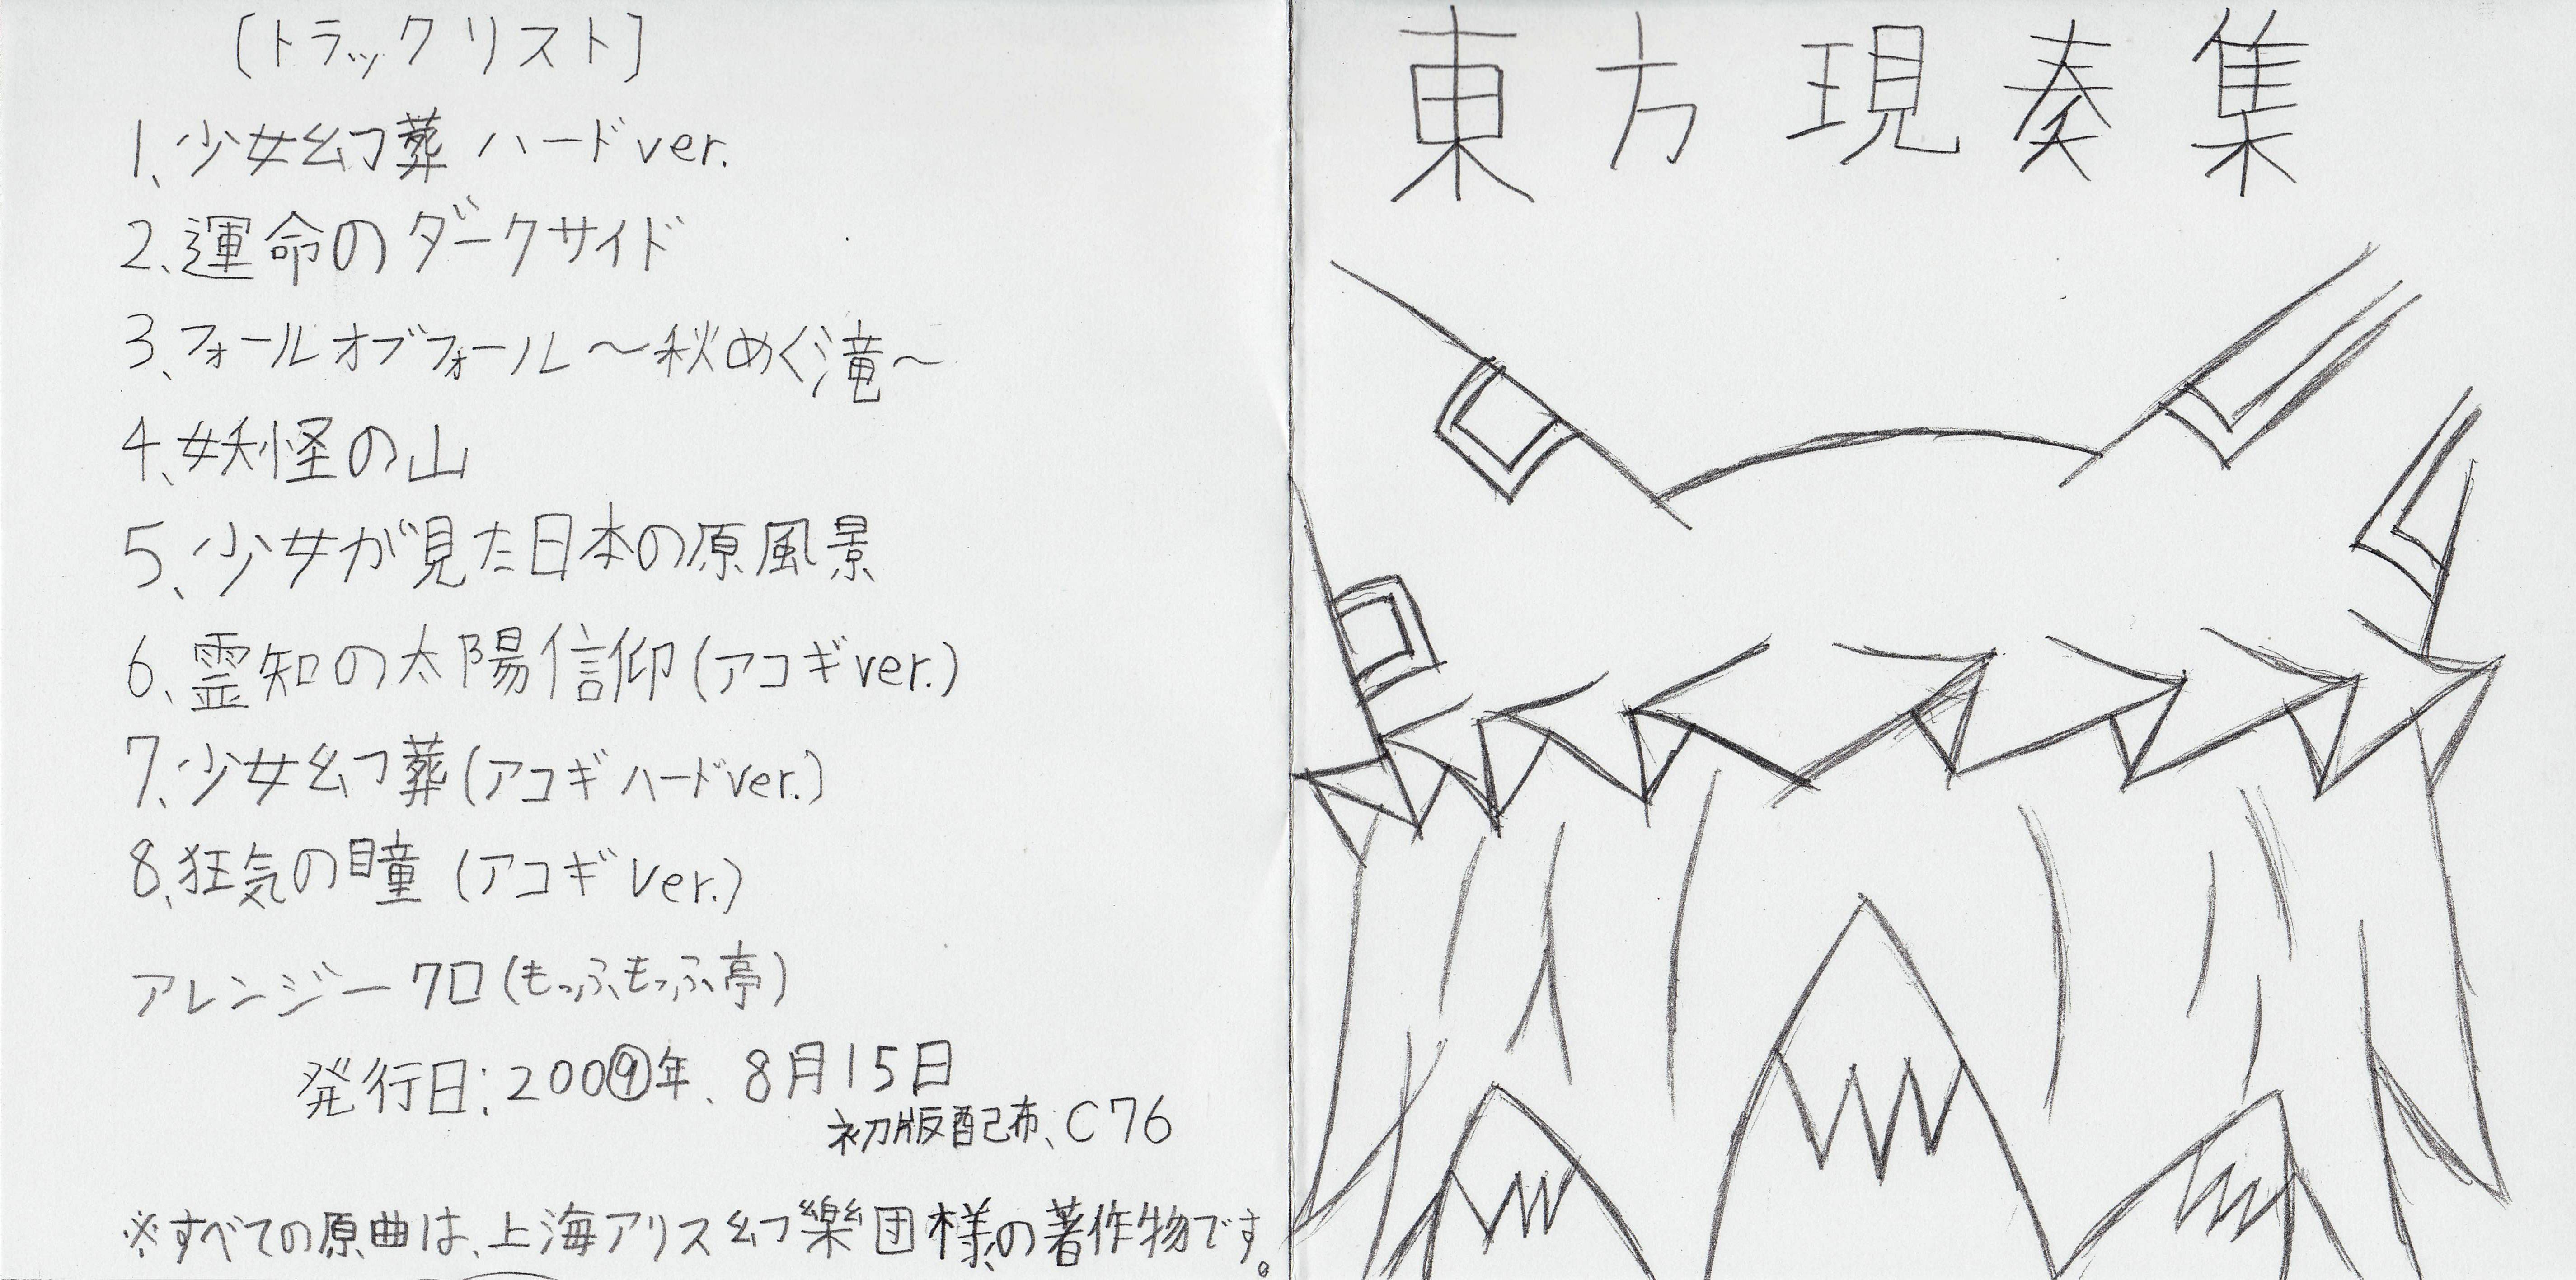 [トラックリスト]
1、少女幻葬 ハードver.
2、運命のダークサイド
3、フォールオブフォール～秋めく滝～
4、妖怪の山
5、少女が見た日本の原風景
6、霊知の太陽信仰(アコギver.)
7、少女幻葬(アコギハードver.)
8、狂気の瞳 (アコギver.)
アレンジークロ(もっふもっふ亭)
発行日:200⑨年、8月15日
初版配布、C76
※すべての原曲は、上海アリス幻樂団様の著作物です。
東方現奏集